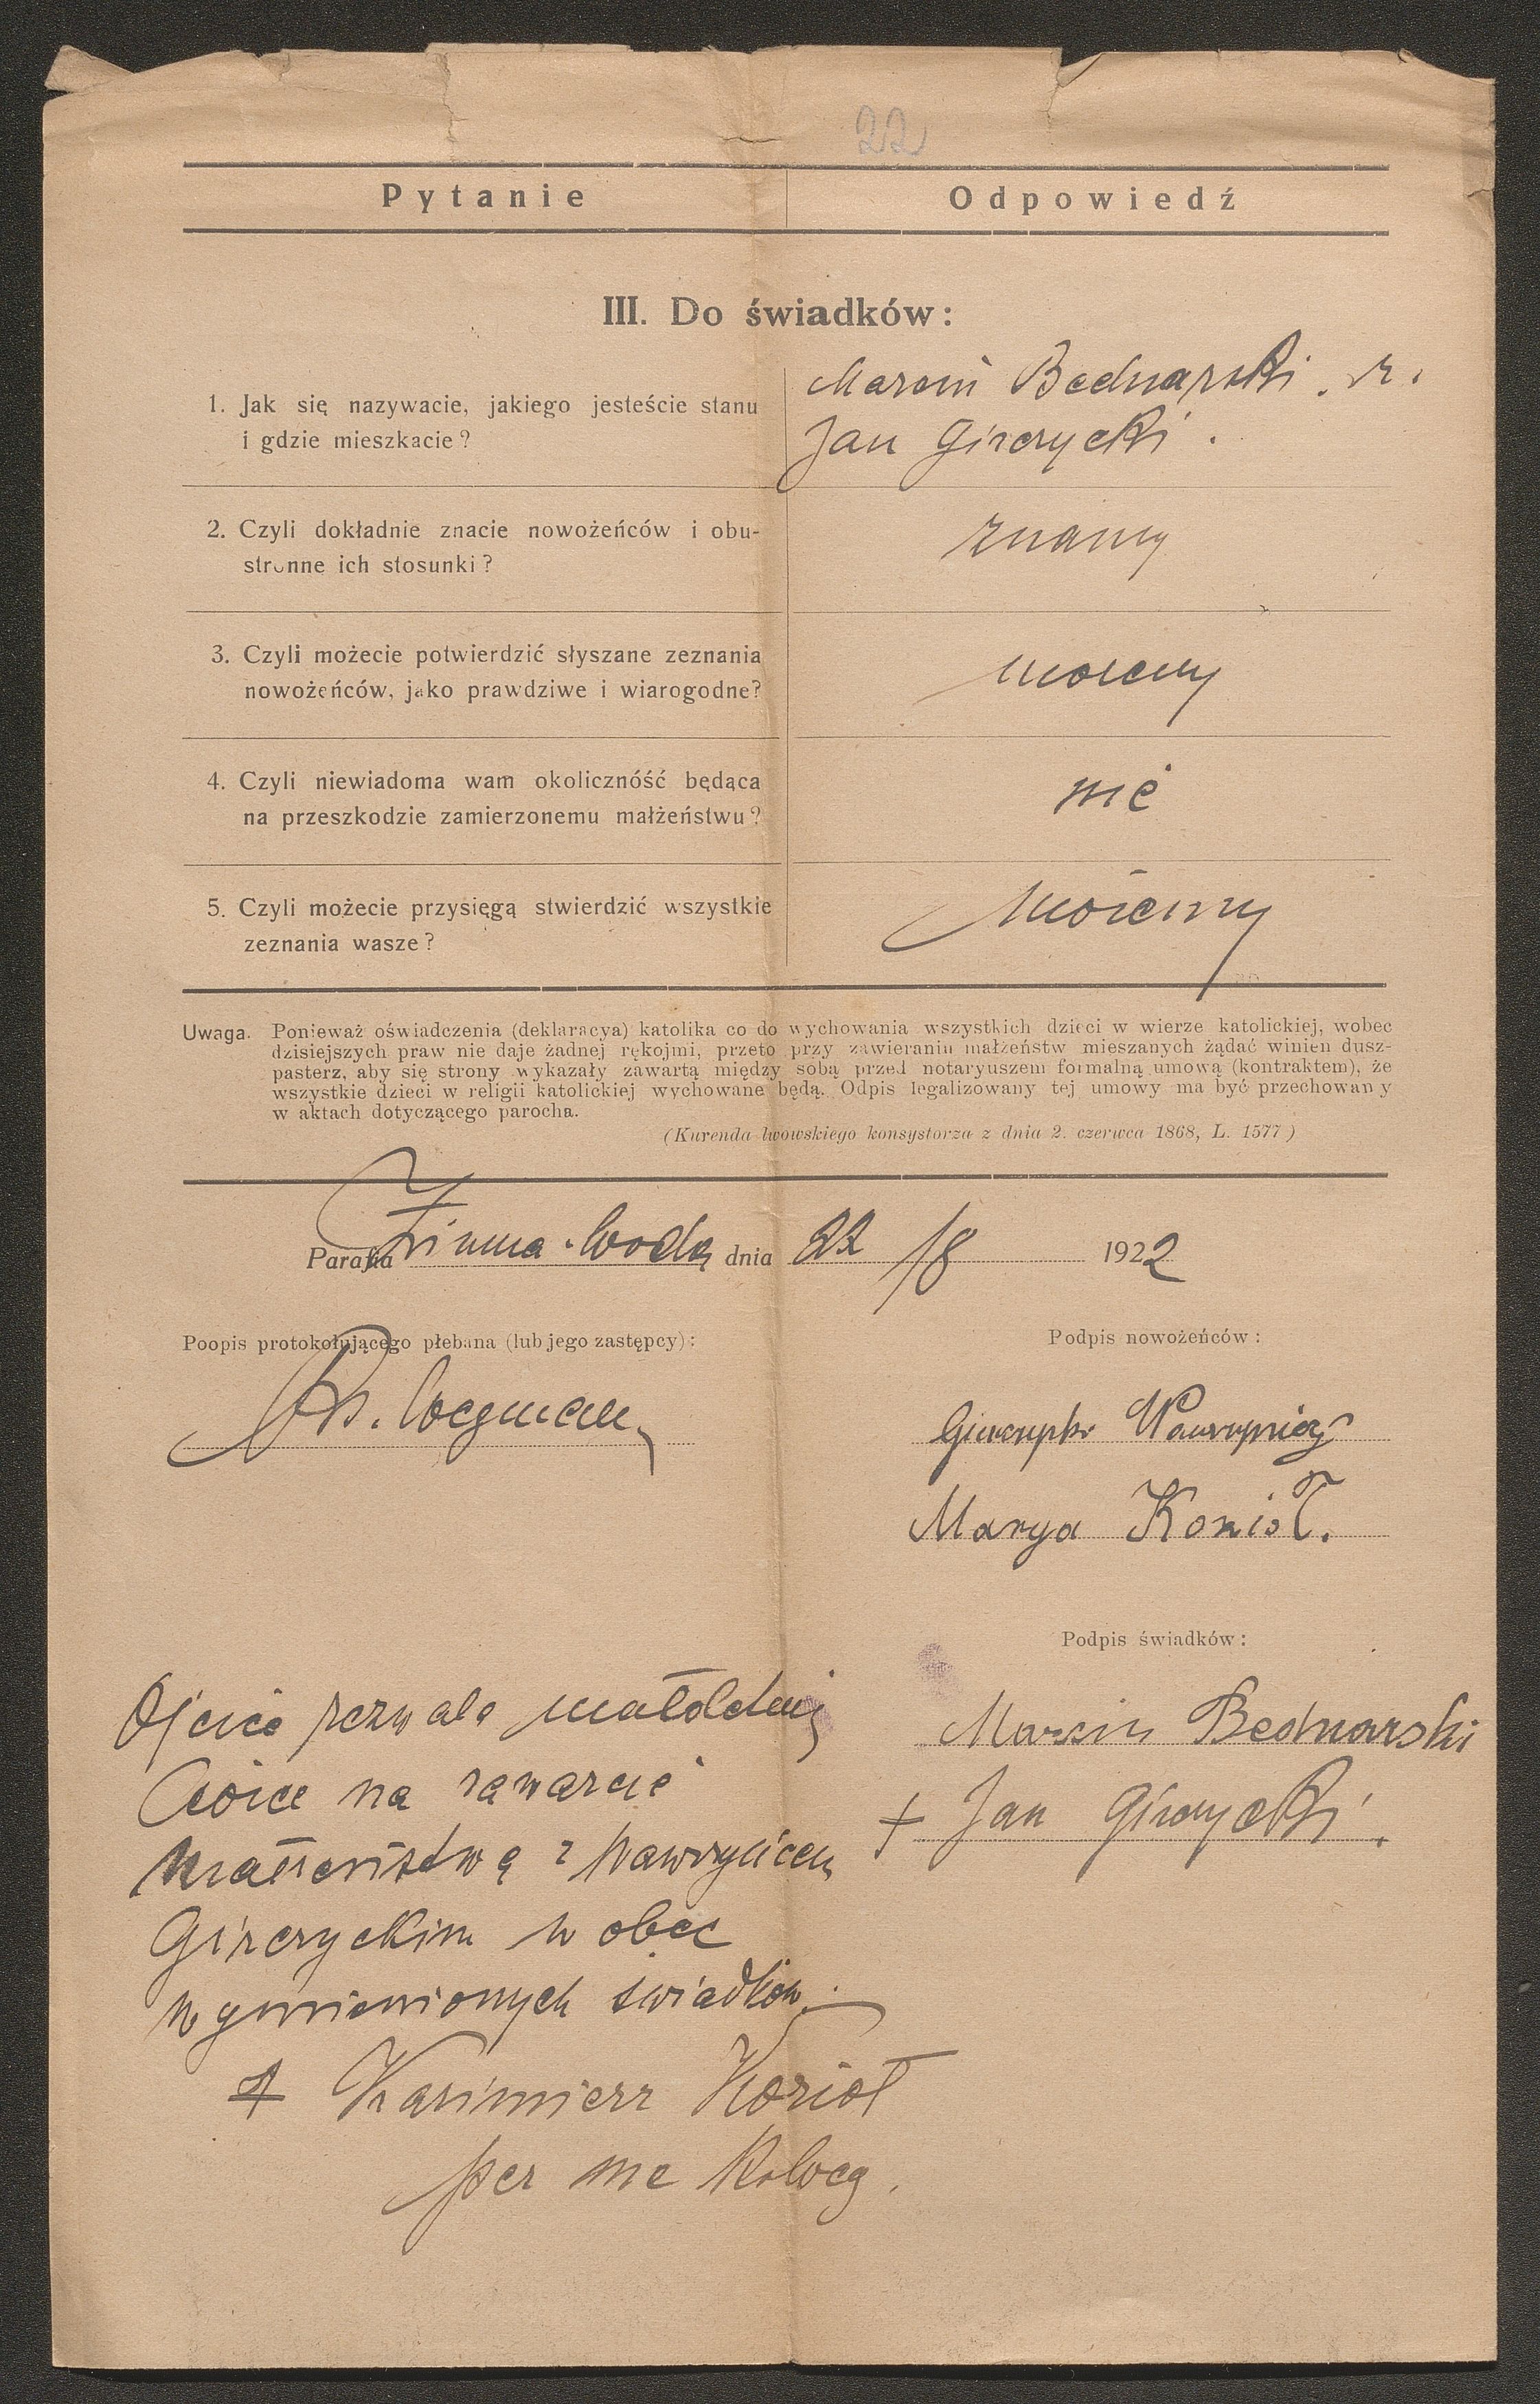 22
Pytanie
Odpowiedź
III. Do świadków:
1. Jak się nazywacie, jakiego jesteście stanu
i gdzie mieszkacie?
Marcin Bednarski . r.
Jan Girczycki .
2. Czyli dokładnie znacie nowożeńców i obu-
stronne ich stosunki?
znamy
3. Czyli możecie potwierdzić słyszane zeznania
nowożeńców, jako prawdziwe i wiarogodne?
możemy
4. Czyli niewiadoma wam okolicznóść będąca
na przeszkodzie zamierzonemu małżeństwu?
nie
5. Czyli możecie przysięgą stwierdzić wszystkie
zeznania wasze?
możemy
Uwaga. Ponieważ oświadczenia (deklaracya) katolika co do wychowania wszystkich dzieci w wierze katolickiej, wobec
dzisiejszych praw nie daje żadnej rękojmi, przeto przy zawieraniu małżeństw mieszanych żądać winien dusz-
pasterz, aby się strony wykazały zawartą między sobą przed notaryuszem formalną umową (kontraktem), że
wszystkie dzieci w religii katolickiej wychowane będą. Odpis legalizowany tej umowy ma być przechowany
w aktach dotyczącego parocha.
(Kurenda lwowskiego konsystorza z dnia 2. czerwca 1868, L. 1577)
Parafia Zimna-Woda dnia 22/8 1922
Poopis protokołującego plebana (lub jego zastępcy):
Podpis nowożeńców:
Ks. Wegman
Wawrzyniec
Marya Konioł.
Podpis świadków:
Marcin Bednarski
+ Jan Girczycki.
Ojciec zezwala małoletniej
córce na zawarcie
małżeństwa z Wawrzyńcem
Girczyckim w obec
wymienionych świadków.
+ Kazimierz Kozioł
per me